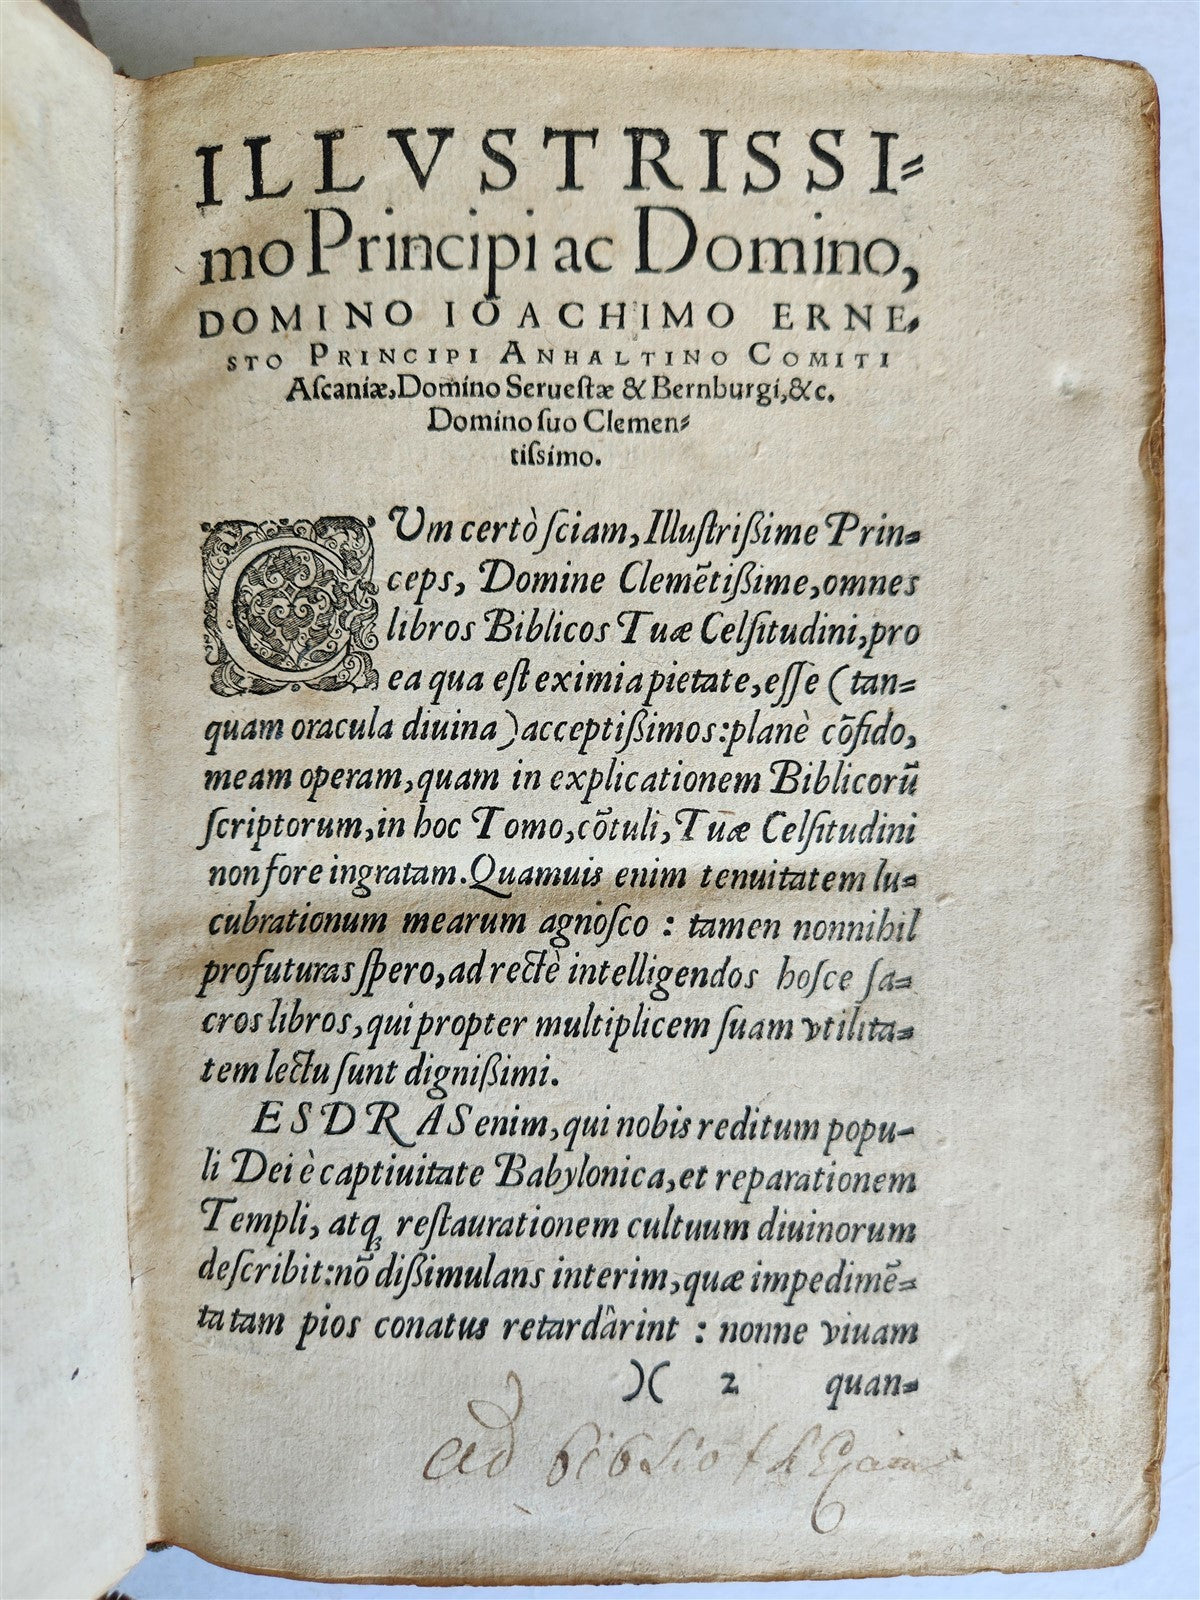 ILLVSTRISSI=
mo Principi ac Domino,
DOMINO IOACHIMO ERNE,
STO PRINCIPI ANHALTINO COMITI
Aſcaniæ, Domino Serueſtæ & Bernburgi, &c.
Domino ſuo Clemen=
tiſsimo.
CVm certò ſciam, Illuſtrißime Prin=
ceps, Domine Clemẽtißime, omnes
libros Biblicos Tuæ Celſitudini, pro
ea qua eſt eximia pietate, eſſe (tan=
quam oracula diuina) acceptißimos: planè cõfido,
meam operam, quam in explicationem Biblicorũ
ſcriptorum, in hoc Tomo, cõtuli, Tuæ Celſitudini
non fore ingratam. Quamuis enim tenuitatem lu=
cubrationum mearum agnoſco : tamen nonnihil
profuturas ſpero, ad rectè intelligendos hoſce ſa=
cros libros, qui propter multiplicem ſuam vtilita=
tem lectu ſunt dignißimi.
ESDRAS enim, qui nobis reditum popu-
li Dei è captiuitate Babylonica, et reparationem
Templi, atqꝫ reſtaurationem cultuum diuinorum
deſcribit: nõ dißimulans interim, quæ impedimẽ=
ta tam pios conatus retardârint : nonne viuam
)( 2 quan=
ad bibliothecam